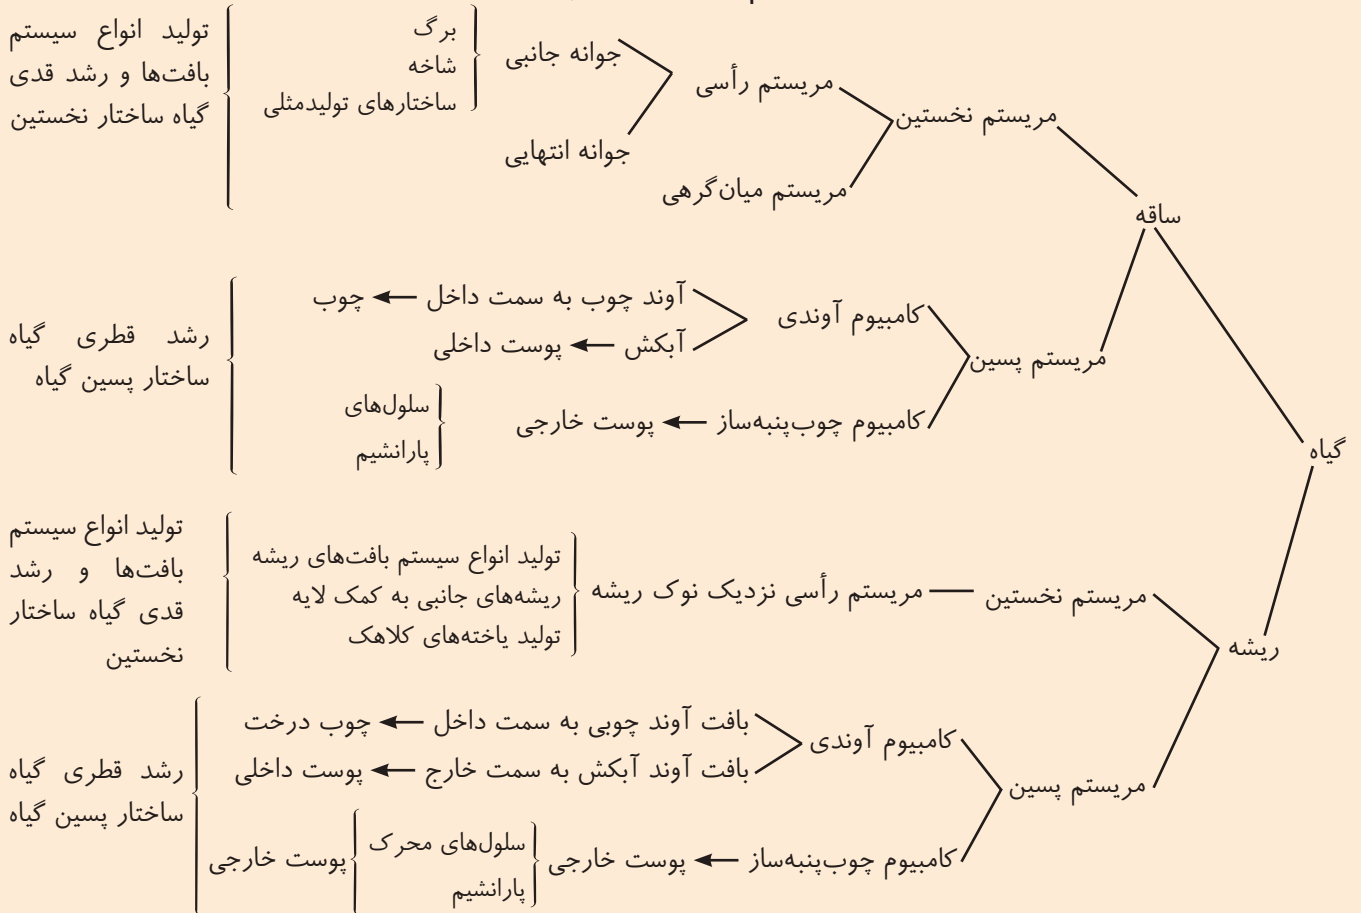 گیاه
ساقه
مریستم نخستین
مریستم رأسی
جوانه جانبی
برگ
شاخه
ساختارهای تولیدمثلی
جوانه انتهایی
مریستم میان‌گرهی
تولید انواع سیستم
بافت‌ها و رشد قدی
گیاه ساختار نخستین
مریستم پسین
کامبیوم آوندی
آوند چوب به سمت داخل ← چوب
آبکش ← پوست داخلی
کامبیوم چوب‌پنبه‌ساز ← پوست خارجی
سلول‌های
پارانشیم
رشد قطری گیاه
ساختار پسین گیاه
ریشه
مریستم نخستین
مریستم رأسی نزدیک نوک ریشه
تولید انواع سیستم بافت‌های ریشه
ریشه‌های جانبی به کمک لایه
تولید یاخته‌های کلاهک
تولید انواع سیستم
بافت‌ها و رشد
قدی گیاه ساختار
نخستین
مریستم پسین
کامبیوم آوندی
بافت آوند چوبی به سمت داخل ← چوب درخت
بافت آوند آبکش به سمت خارج ← پوست داخلی
کامبیوم چوب‌پنبه‌ساز ← پوست خارجی
سلول‌های محرک
پارانشیم
پوست خارجی
رشد قطری گیاه
ساختار پسین گیاه